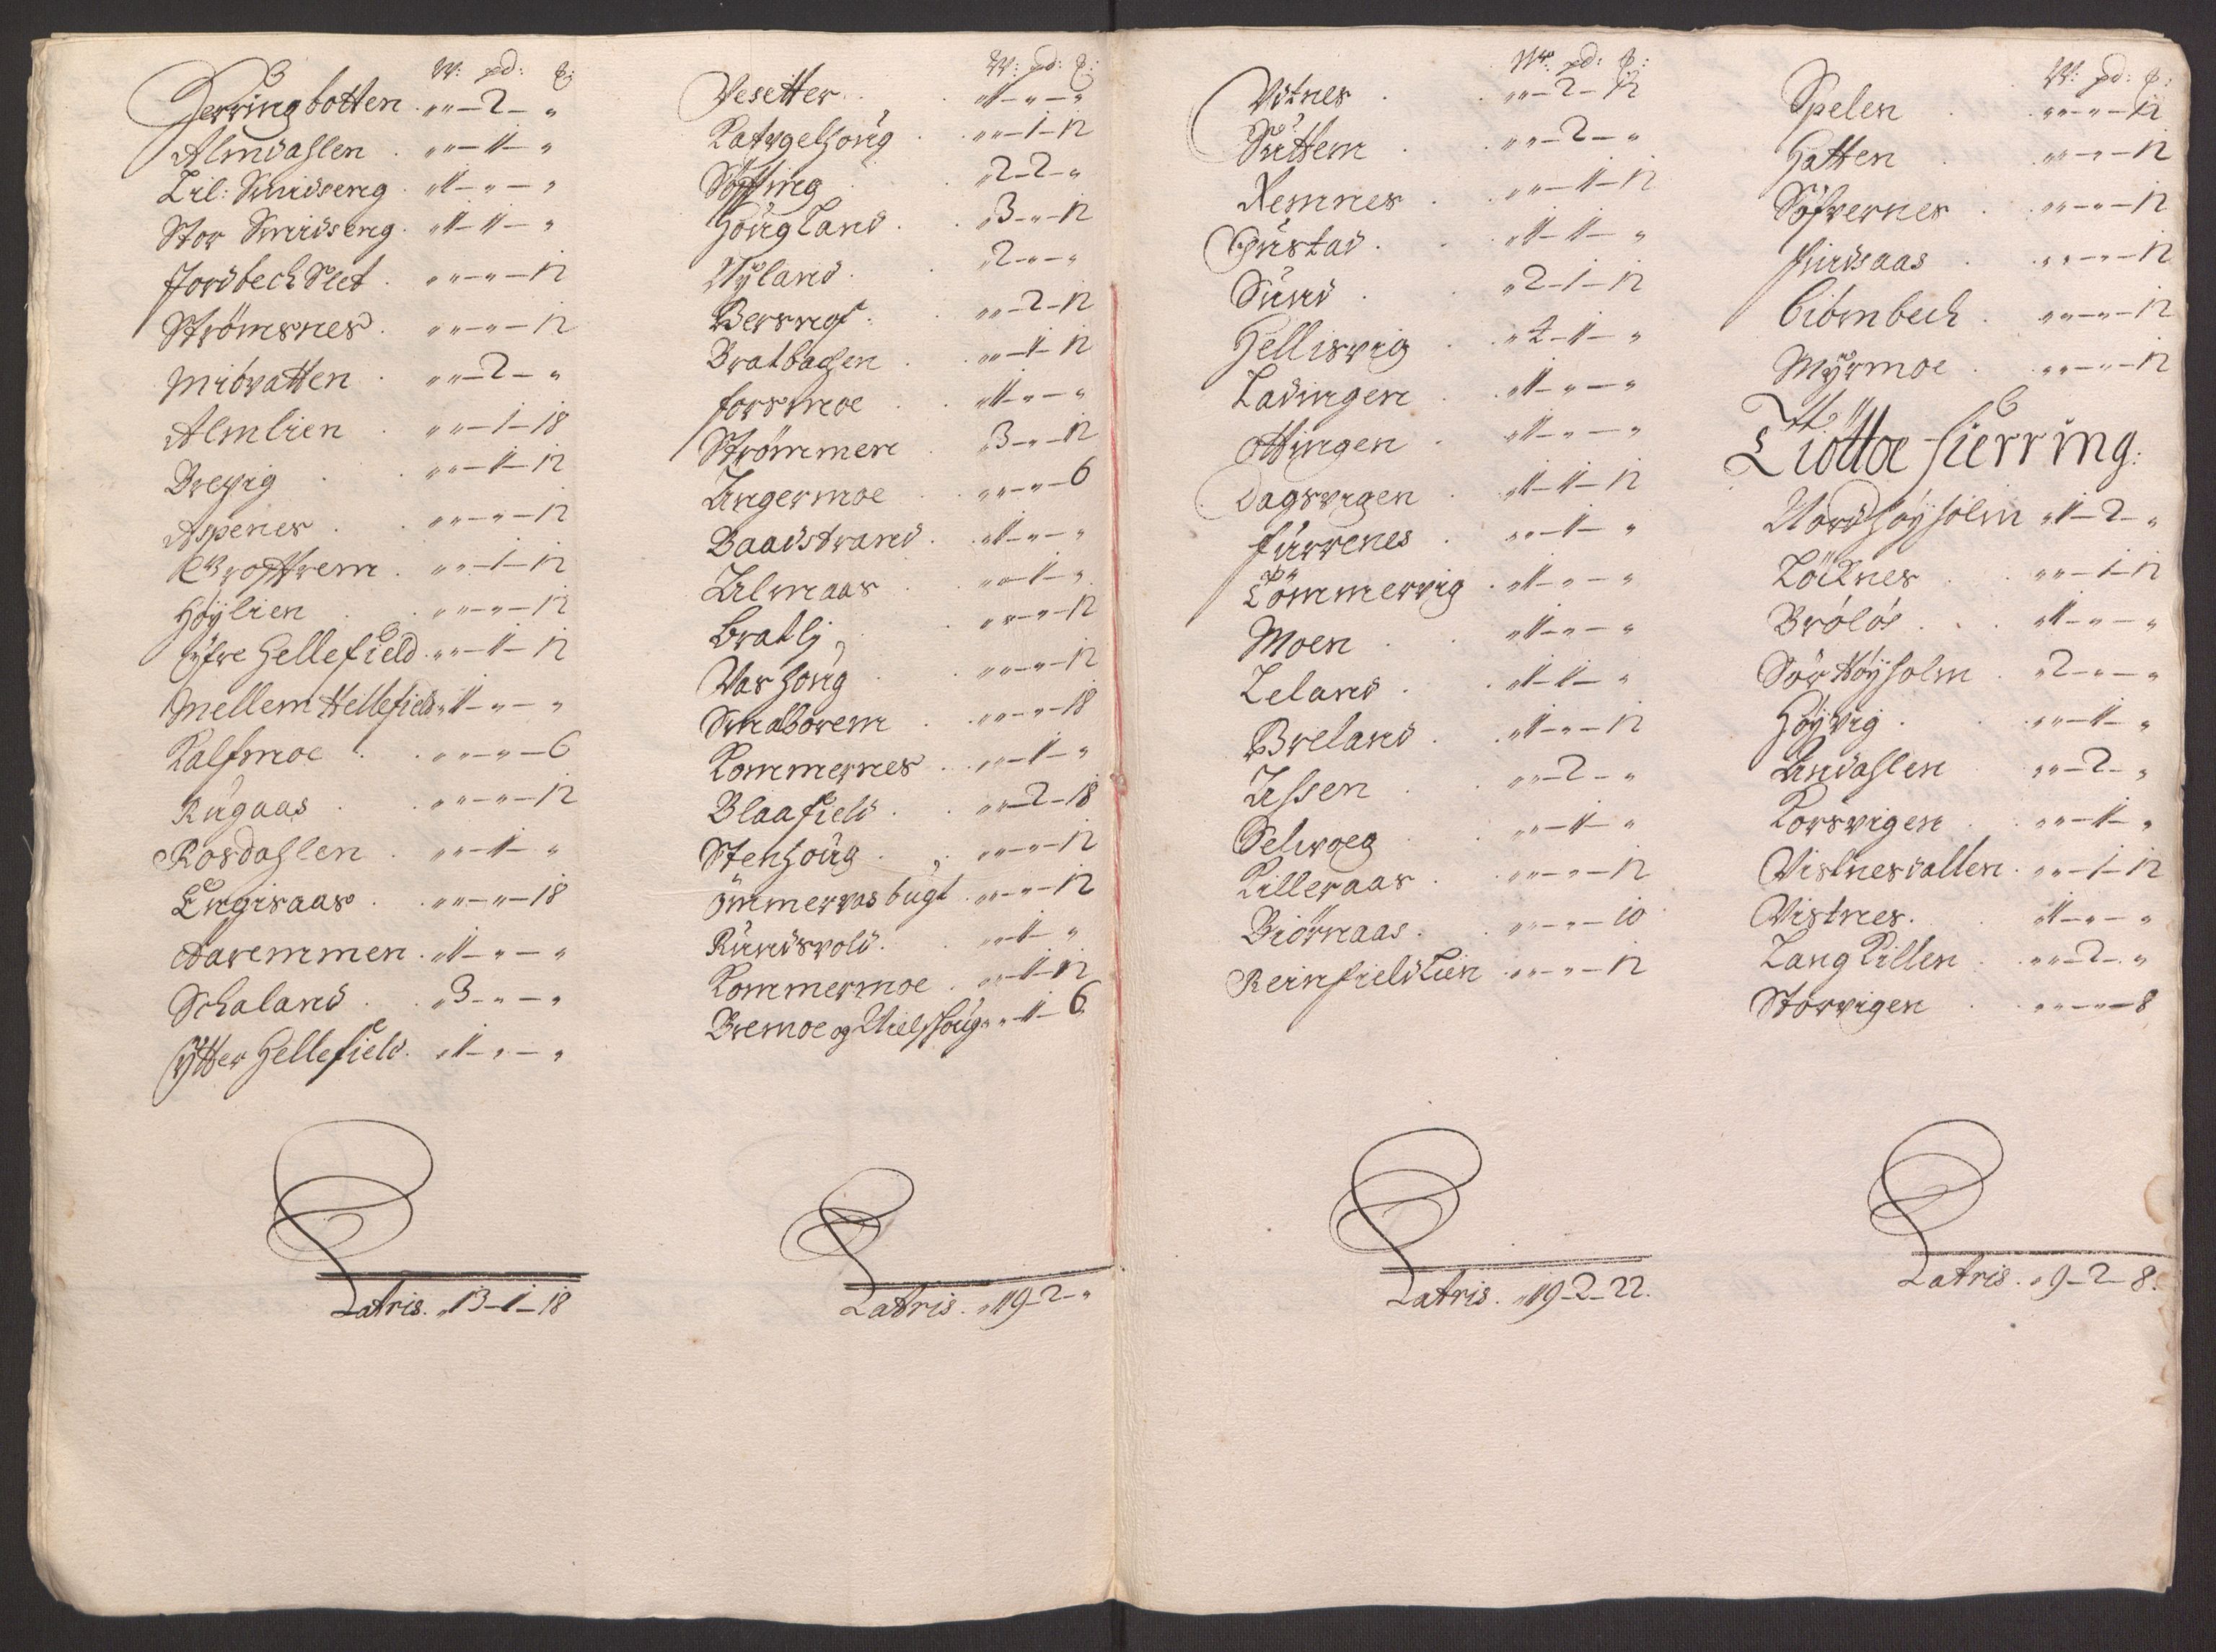 W: pd: ℔:
Herringbotten . „ „ – 2 – „
Almdahlen . „ „ – 1 – „
Lil: Smidseng . „ 1 – „ – „
Stor Smidseng . „ 1 – 1 – „
Jordbechslet . „ „ – „ – 12
Strømsnes . „ „ – „ – 12
Midvatten . „ „ – 2 – „
Almlien . „ „ – 1 – 18
Brevig . „ „ – 1 – 12
Aspenes . „ „ – „ – 12
Kroftrem . „ „ – 1 – 12
Høylien . „ „ – „ – 12
Øfre Hellefield . „ „ – 1 – 12
Mellem Hellefield „ 1 – „ – „
Kalfmoe . „ „ – „ – 6
Rugaas . „ „ – „ – 12
Rosdahlen . „ „ – 1 – „
Engisaas . „ „ – „ – 18
Daremmen . „ 1 – „ – „
Schaland . „ 3 – „ – „
Ytter Hellefield . „ 1 – „ – „
Latris . „ 13 – 1 – 18
W: pd: ℔:
Vesetter . „ 1 – „ – „
Katugelhoug . „ „ – 1 – 12
Søfting . „ 2 – 2 – „
Hougland . „ 3 – „ – 12
Nyland . „ 2 – „ – „
Bersnes . „ „ – 2 – 12
Bratbachen . „ „ – 1 – 12
Forsmoe . „ 1 – „ – „
Strømmen . „ 3 – „ – 12
Ungermoe . „ „ – „ – 6
Baadstrand . „ 1 – „ – „
Ulmaas . „ „ – 1 – „
Bratlj . „ „ – „ – 12
Vashoug . „ „ – „ – 12
Smaborem . „ „ – „ – 18
Kommernes . „ „ – 1 – „
Blaafield . „ „ – 2 – 18
Stenhoug . „ „ – „ – 12
Ömmervasbugt . „ „ – „ – 12
Rundsvold . „ „ – 1 – „
Kommermoe . „ „ – 1 – 12
Bremoe og Nielshoug „ „ – 1 – 6
Latris . „ 19 – 2 – „
W: pd: ℔:
Vdtnes . „ „ – 2 – 12
Suttem . „ „ – 2 – „
Remnes . „ „ – 1 – 12
Gustad . „ 1 – 1 – „
Sund . „ 2 – 1 – 12
Hellisvig . „ 2 – 1 – „
Ladingen . „ 1 – „ – „
Ottingen . „ 1 – „ – „
Dagsvigen . „ 1 – 1 – 12
Furrenes . „ „ – 1 – „
Tömmervig . „ 1 – „ – „
Moen . „ 1 – „ – „
Leland . „ 1 – 1 – „
Breland . „ 1 – „ – 12
Ulsen . „ „ – 2 – „
Selvoeg . „ „ – 1 – „
Killeraas . „ „ – „ – 12
Biörnaas . „ „ – „ – 10
Reinfieldlien . „ „ – „ – 12
Latris . „ 19 – 2 – 22.
W: pd: ℔:
Spelen . „ „ – „ – 12
Hatten . „ „ – „ – 12
Söfvernes . „ „ – „ – 12
Findsaas . „ „ – „ – 12
Biörnbech . „ „ – „ – 12
Myrmoe . „ „ – „ – 12
Tiöttoe fierring:
Nordhøyholm „ 1 – 2 – „
Löcknes . „ „ – 1 – 12
Brölös . „ 1 – „ – „
Sör Høyholm . „ 2 – „ – „
Høyvig . „ „ – 1 – „
Lindahlen „ „ – 2 – „
Korsvigen . „ „ – 1 – „
Vistnesvallen . „ „ – 1 – 12
Vistnes . „ 1 – „ – „
Lang Killen . „ „ – 2 – „
Storvigen . „ „ – „ – 8
Latris . „ 9 – 2 – 8.